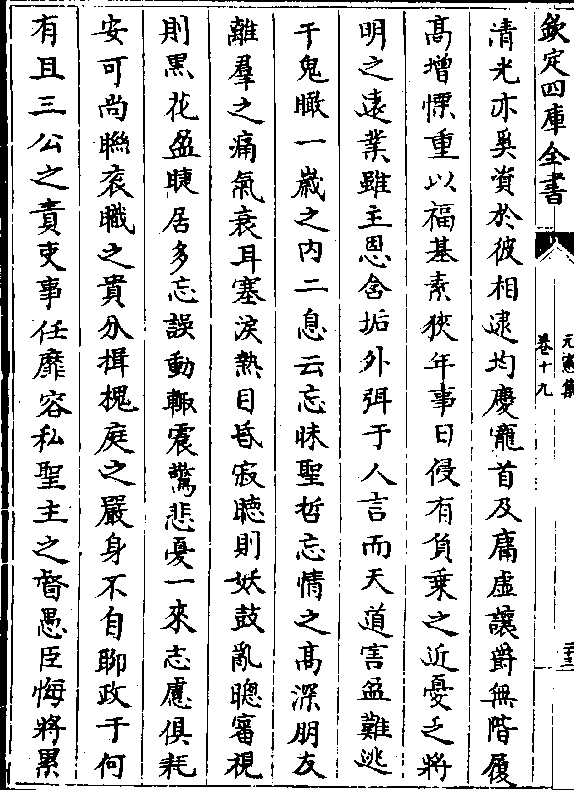 欽定四庫全書
元憲集
卷十九
清光亦奚資於彼相逮均慶寵首及庸虛讓爵無階履
高增慄重以福基素狹年事日侵有負乗之近憂乏將
明之逺業雖主恩含垢外弭于人言而天道害盈難逃
于鬼瞰一嵗之内二息云忘昧聖哲忘情之髙深朋友
離羣之痛氣衰耳塞淚熱目昏寂聴則妖鼓亂聰審視
則黒花盈睫居多忘誤動輙震驚悲憂一來志慮俱耗
安可尚聮衮職之貴分揖槐庭之嚴身不自聊政于何
有且三公之責吏事任靡容私聖主之督愚臣悔將累